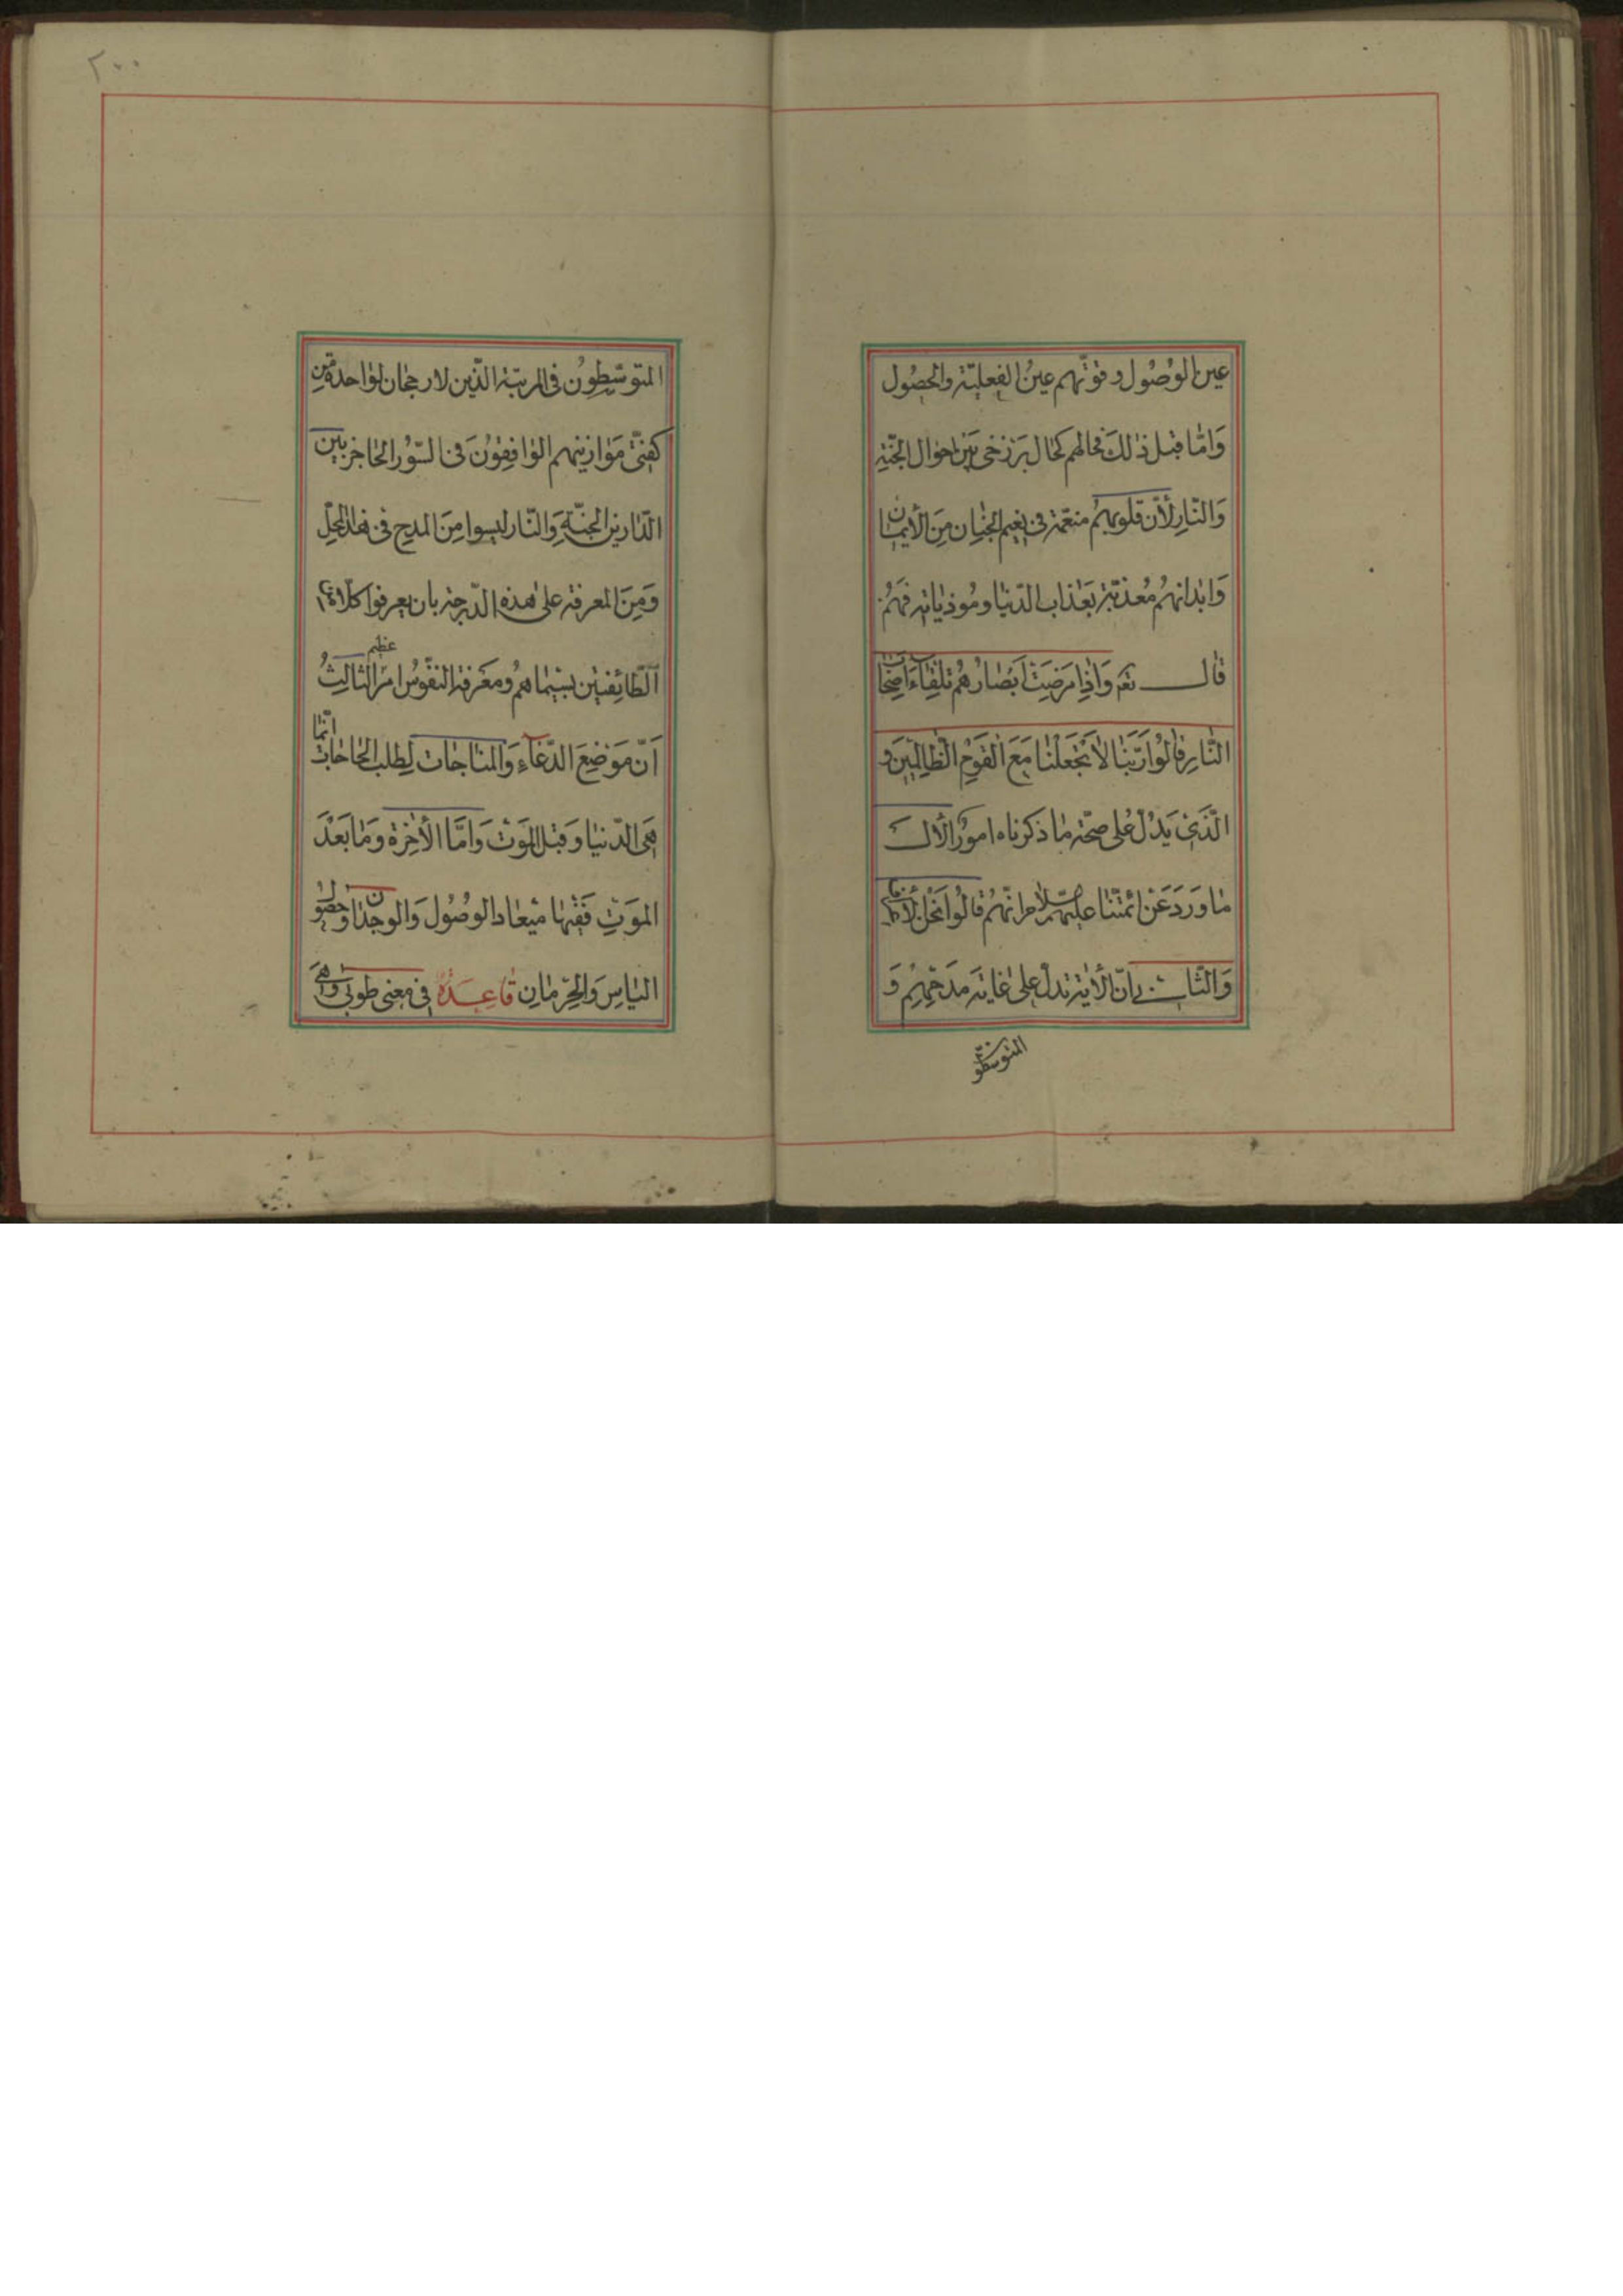 عين الوُصُول وقوّتهم عينُ الفعليّة والحصُول
وَامّا قبل ذٰلكَ فحالهم كحال بَرزخی بَين احوال الجنّة
وَالنّارِ لأنّ قلوبهُم منعّمة فی نعيم الجنان مِنَ الأيمان
وَابدانهُم مُعذّبَة بعَذاب الدّنيا ومُوذياته فهُم
قال تعَ وَاِذا صرفَت اَبصارُهُم تلقاءَ اَصحاب
النّارِ قالُوا رَبّنا لا تَجعَلنا مَعَ القَومِ الظّالِمينَ و
الّذی يَدُلّ عَلی صحّة ما ذكرناه امورٌ الأوّل
ما وَرَدَ عَن ائمّتنا عليهم السّلام انّهُم قالُوا نحن الأعراف
وَالثّانی انّ الأية تدلّ علی غاية مَدحِهِم وَ
المتوسّطو
٢٠٠
المتوسّطوُن فی المرتبة الّذين لا رجحان لواحدة من
كفّتی مَوازينهم الواقفوُنَ فی السّوُر الحاجز بين
الدّارين الجنّة وَالنّار ليسوا مِنَ المدح فی هذا المحلّ
وَمِنَ المعرفة علی هذه الدّرجة بان يعرفوا كلّا من
الطّائفتين بسيماهُم ومَعَرفة النفّوُس امرٌ عظيم الثالِثُ
اَنّ مَوضِعَ الدّعآء وَالمناجات لِطلب الحاجات انّما
هَی الدّنيا وَقبل المَوت وَامّا الأخِرة وَما بَعْدَ
المَوتِ فَفيها ميعاد الوصُول وَالوجدان وَحصُول
الياس وَالحِرمان قاعِدَةٌ فی معنی طوبی وَهی